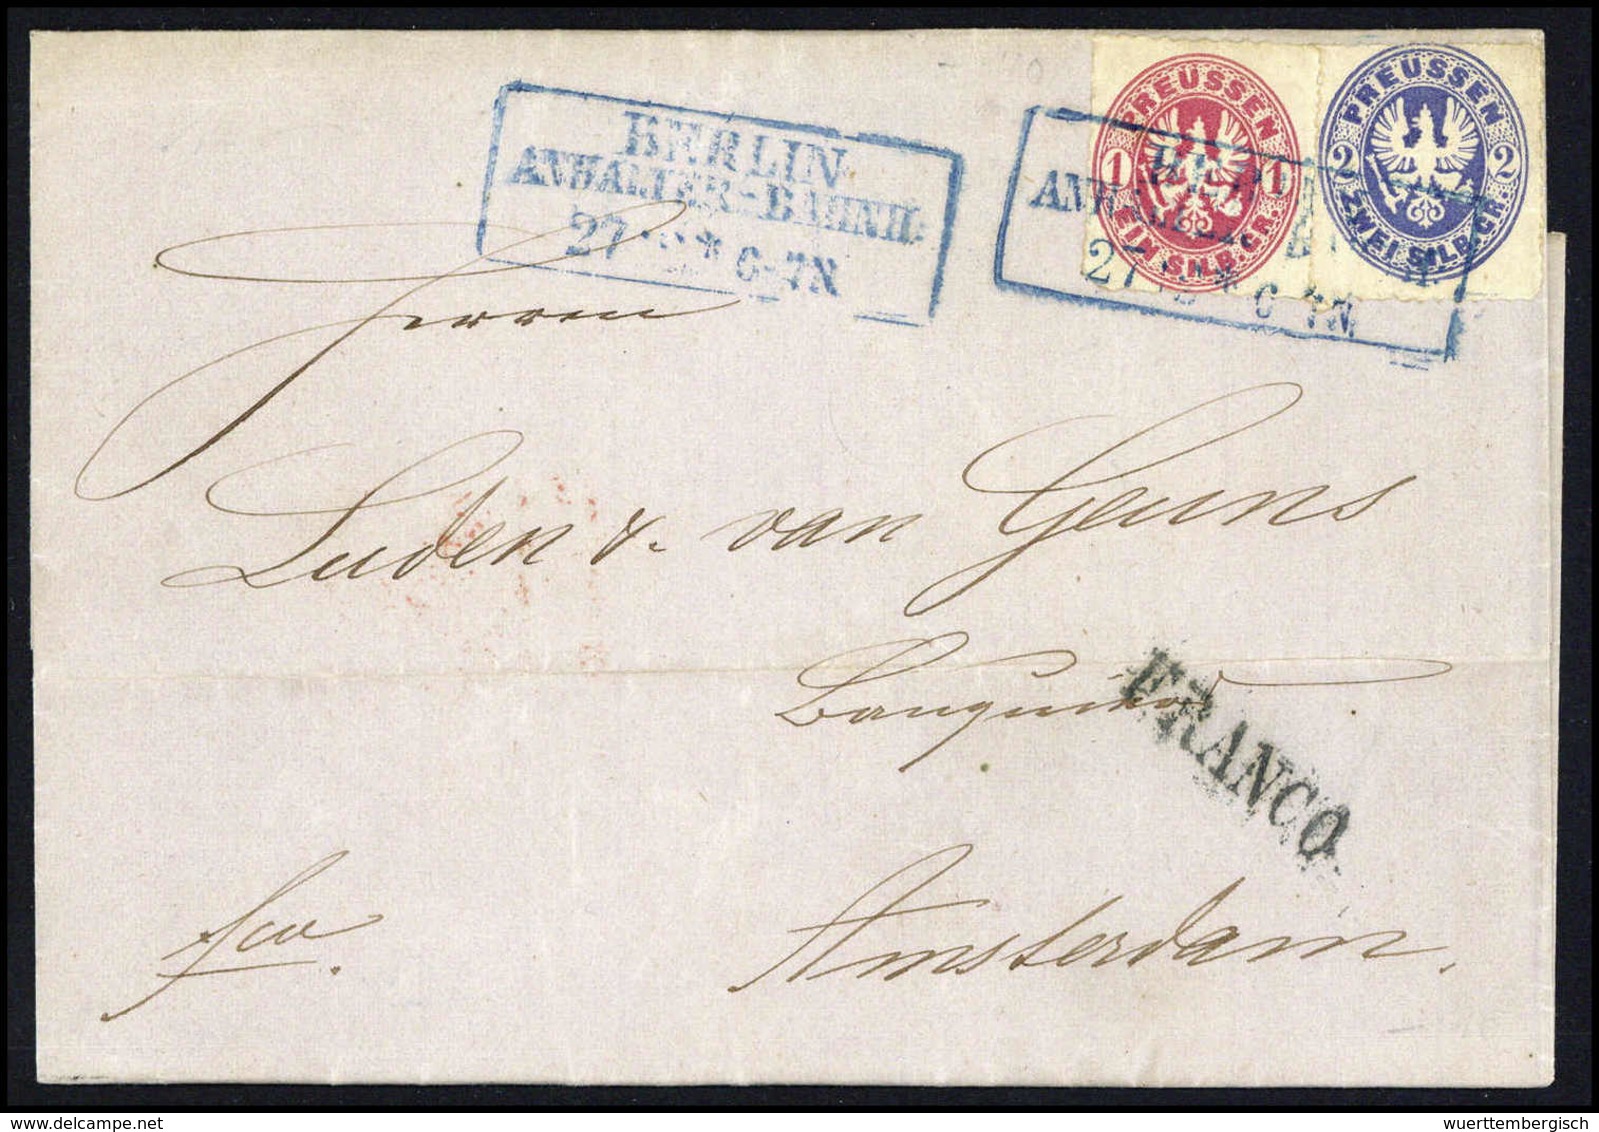 BERLIN
ANHALTER-BAHNH.
27 * 6-7N
BERLIN
ANHALTER-B
27 * 6-7N
PREUSSEN
1 1
EIN SILB.GR.
PREUSSEN
2 2
ZWEI SILB.GR.
Herren
Luden & van Geuns
Banquiers
FRANCO
fco.
Amsterdam.
www.delcampe.net
wuerttembergisch